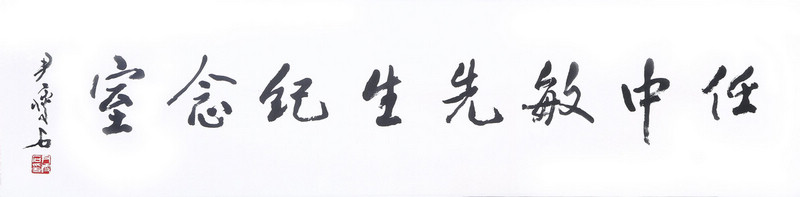 任中敏先生纪念室
尹瘦石